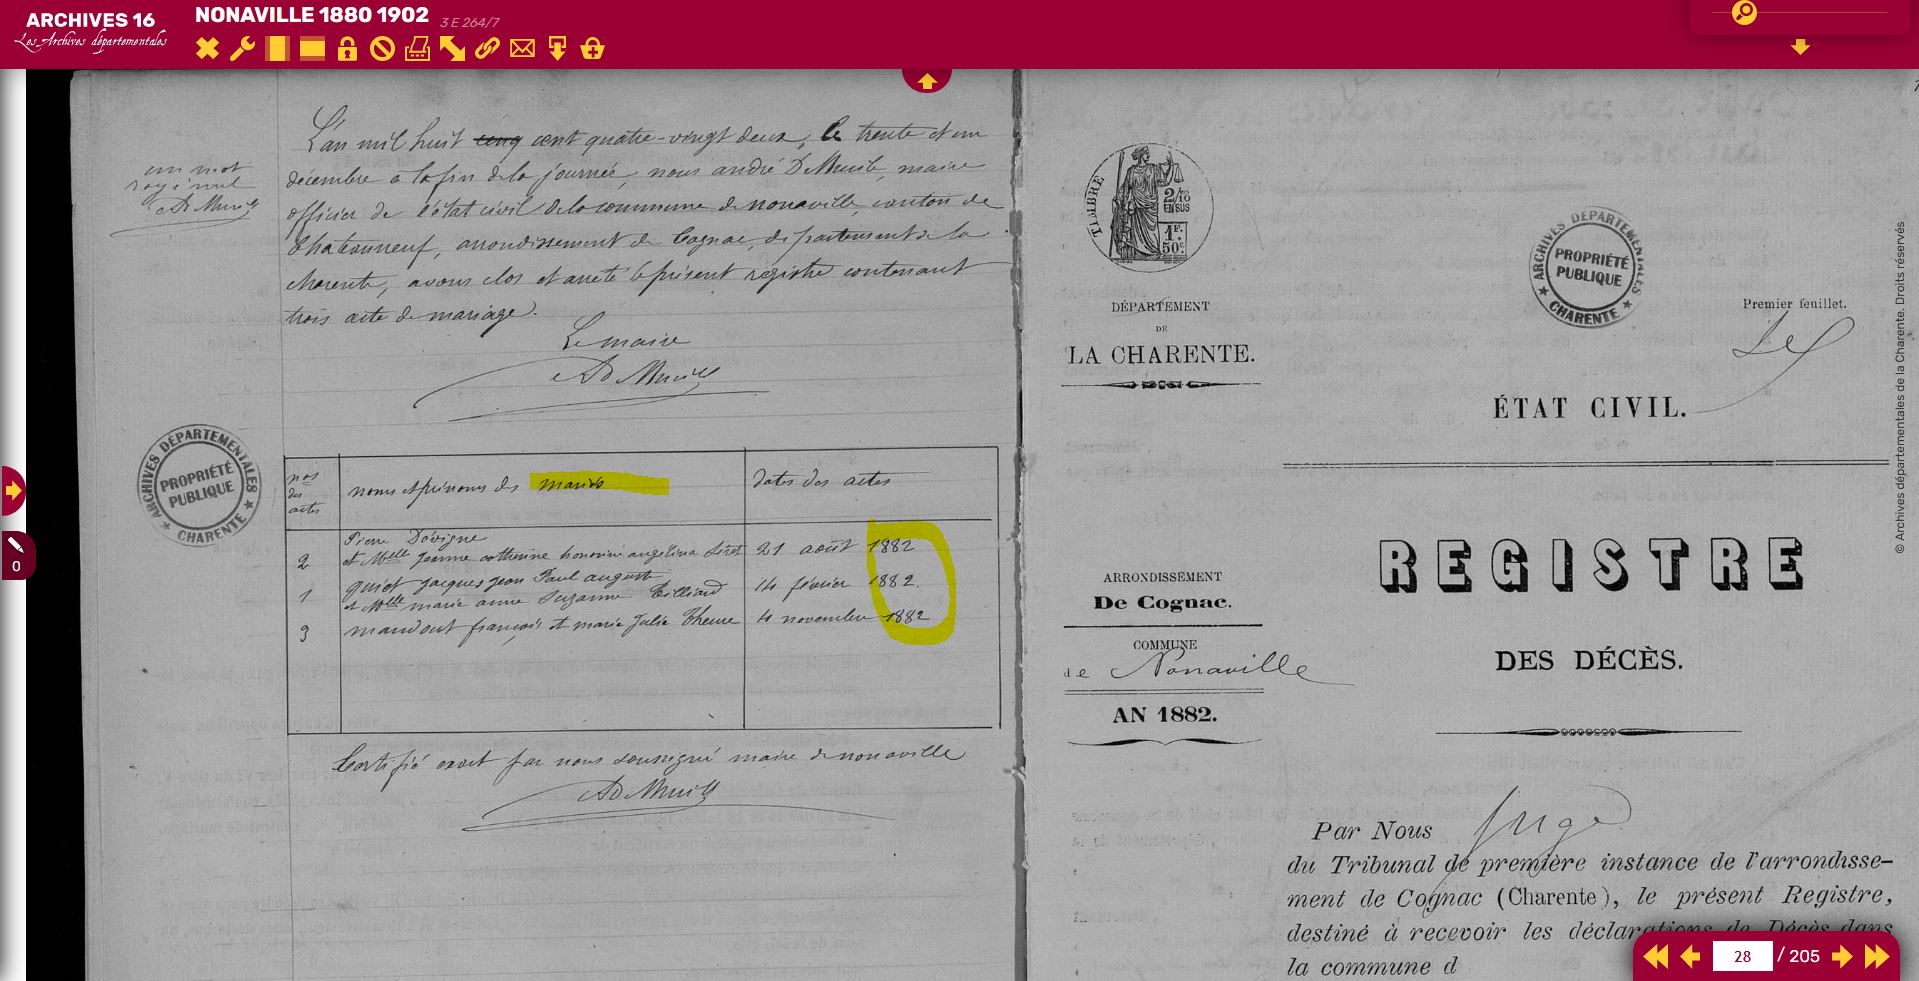 ARCHIVES 16
Les Archives départementales
NONAVILLE 1880 1902
3 E 264/7
L'an mil huit cinq cent quatre-vingt deux, le trente et un
décembre a la fin de la journée, nous andré D Muile, maire
officier de l'état civil de la commune de nonaville, canton de
Chateauneuf, arrondissement de Cognac, département de la
charente, avons clos et arreté le présent registre contenant
trois acte de mariage.
un mot
rayé nul
AD Muile
Le maire
AD Muile
ARCHIVES DÉPARTEMENTALES
PROPRIÉTÉ
PUBLIQUE
CHARENTE
nos des actes
noms et prénoms des mariés
dates des actes
2
Pierre Dévigne
et Melle Jeanne catherine honorine angelina
21 août 1882
1
quiet jacques jean Paul auguste
et Melle marie anne Suzanne Tilliard
14 février 1882.
3
mandout françois et marie Julie Theure
4 novembre 1882
Certifié exact par nous soussigné maire de nonaville
AD Muile
TIMBRE
2/10
EN SUS
1 F.
50 c.
DÉPARTEMENT
DE
LA CHARENTE.
ARRONDISSEMENT
De Cognac.
COMMUNE
de Nonaville
AN 1882.
ARCHIVES DÉPARTEMENTALES
PROPRIÉTÉ
PUBLIQUE
CHARENTE
Premier feuillet.
ÉTAT CIVIL.
REGISTRE
DES DÉCÈS.
Par Nous juge
du Tribunal de première instance de l'arrondisse-
ment de Cognac (Charente), le présent Registre,
destiné à recevoir les déclarations de Décès dans
la commune d
© Archives départementales de la Charente. Droits réservés
0
28 / 205